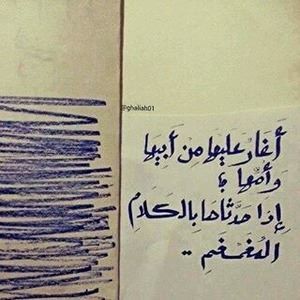 @ghaliah01
أَغَارُ عَليهَا مِن أَبيهَا
وَأُمّهَا ؛
إِذَا حَدّثَاهَا بِالكَلامِ
المُغَمْغَمِ ..